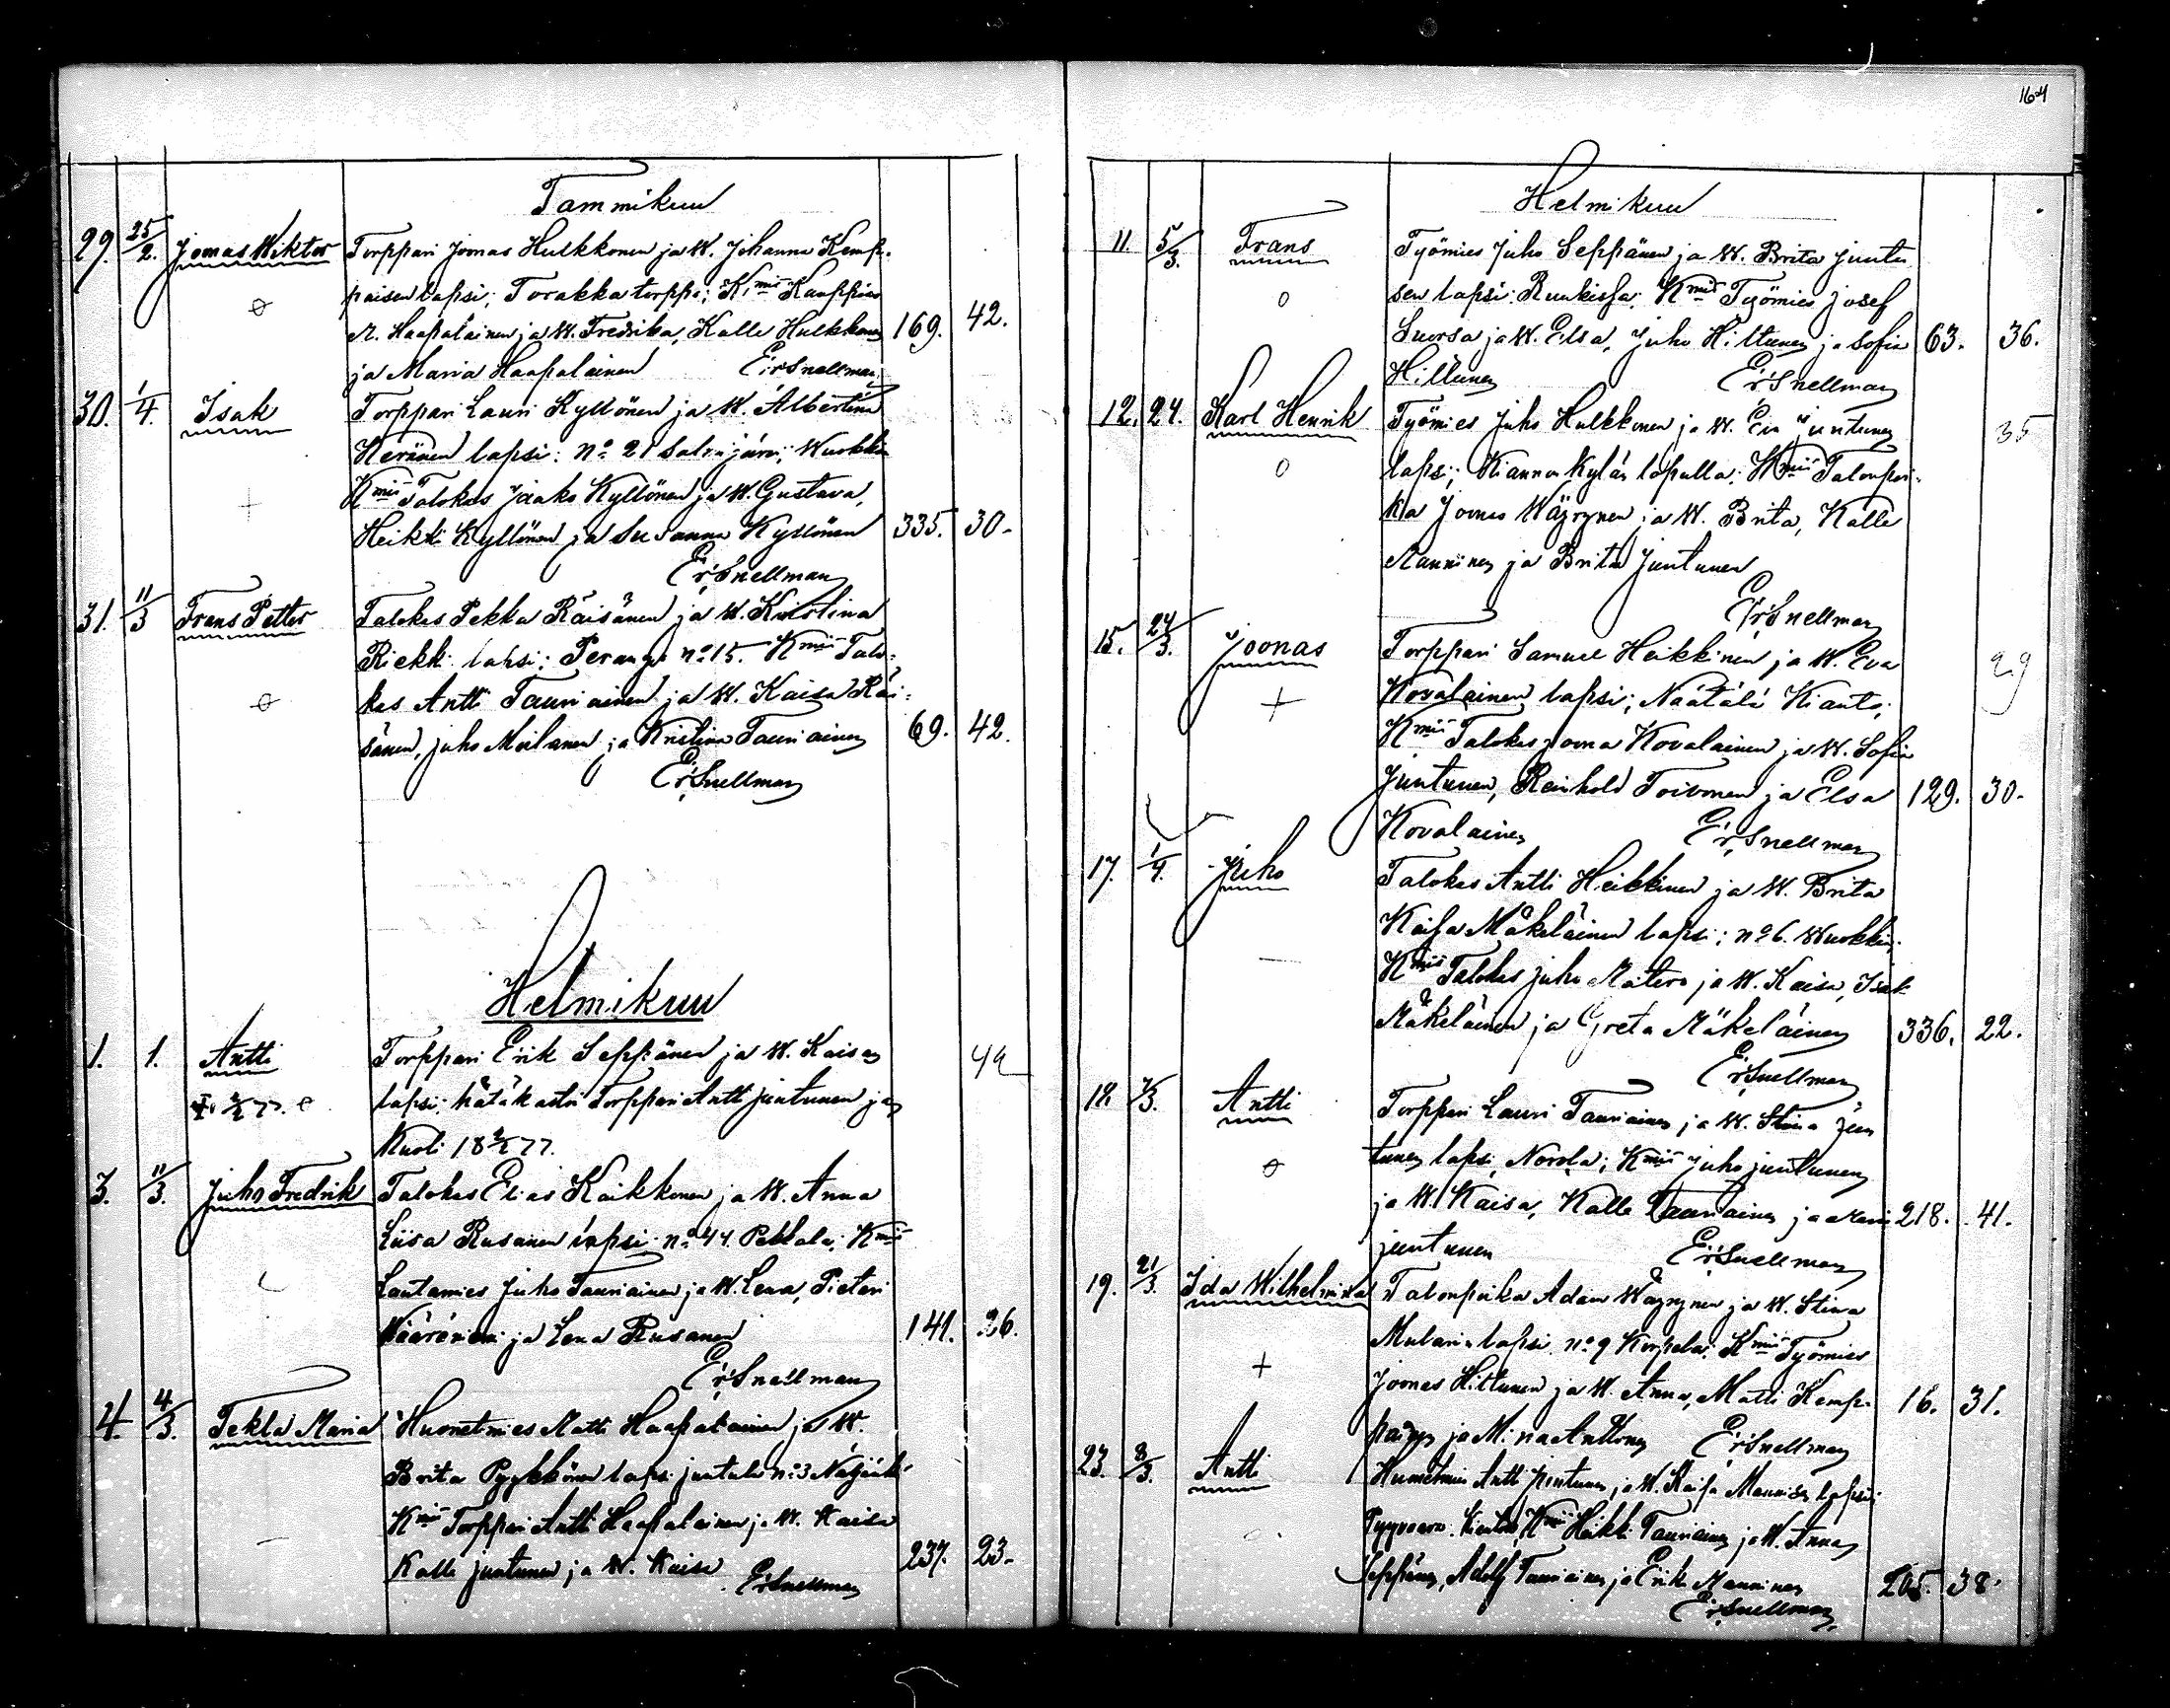 Tammikuu
29. 25/2. Joonas Wiktor Torppari Joonas Hulkkonen ja W. Johanna Kemp-
paisen lapsi; Torakka torppa; Kmit Kauppias
A. Haapalainen ja W. Fredrika, Kalle Hulkkonen 169. 42.
ja Maria Haapalainen Er. Snellman
30. 1/4. Isak Torppari Lauri Kyllönen ja W. Albertina
Keränen lapsi: No 21 Salmijärvi; Wuokki
Kmit Talokas Jaako Kyllönen ja W. Gustava,
Heikki Kyllönen ja Susanna Kyllönen 335. 30.
Er. Snellman
31. 11/3 Frans Petter Talokas Pekka Räisänen ja W. Kristina
Riekki lapsi; Peranga no 15. Kmit Talo-
kas Antti Tauriainen ja W. Kaisa Räi-
sänen, Juho Moilanen ja Kristina Tauriainen 69. 42.
Er. Snellman
Helmikuu
1. 1. Antti Torppari Erik Seppänen ja W. Kaisan 42
lapsi; hätäkasti Torppari Antti Juntunen ja
Kuoli 18 2/2 77.
3. 11/3. Juho Fredrik Talokas Elias Kaikkonen ja W. Anna
Liisa Rusanen lapsi no 44. Pekkala; Kmit
Lautamies Juho Tauriainen ja W. Lena, Pietari
Wääräniemi ja Lena Rusanen 141. 26.
Er. Snellman
4. 4/3. Tekla Maria Huonetmies Matti Haapalainen ja W.
Brita Pyykkönen lapsi Juntula no 3 Näljänk.
Kmit Torppari Antti Haapalainen ja W. Kaisa
Kalle Juntunen ja W. Kaisa 237. 23.
Er. Snellman
164
Helmikuu
11 5/3. Frans Työmies Juho Seppänen ja W. Brita Juntu
sen lapsi: Ruukissa; Kmit Työmies Josef
Suorsa ja W. Elsa, Juho Hiltunen ja Sofia 63. 36.
Hiltunen Er. Snellman
12. 24. Karl Henrik Työmies Juho Hulkkonen ja W. Eva Juntunen 35
lapsi; Kianna Kylän lopulla; Kmit Talonpoi-
ka Joonas Wäyrynen ja W. Brita, Kalle
Manninen ja Brita Juntunen
Er. Snellman
15. 24/3. Joonas Torppari Samuel Heikkinen ja W. Eva 29
Kovalainen lapsi; Näätälä Kianta;
Kmit Talokas Joona Kovalainen ja W. Sofia
Juntunen, Reinhold Toivonen ja Elsa 129. 30.
Kovalainen Er. Snellman
17. 1/4. Juho Talokas Antti Heikkinen ja W. Brita
Kaisa Mäkeläinen lapsi; no 6. Wuokki;
Kmit Talokas Juho Matero ja W. Kaisa, Isak
Mäkeläinen ja Greta Mäkeläinen 336. 22.
Er. Snellman
18. Antti Torppari Lauri Tauriainen ja W. Stina Jun
tunen lapsi, Norola; Kmit Juho Juntunen
ja W. Kaisa, Kalle Tauriainen ja Mari 218. 41.
Juntunen Er. Snellman
19. 21/3. Ida Wilhelmina Talonpoika Adam Wäyrynen ja W. Stina
Mularin lapsi no 9 Korpela; Kmit Työmies
Joonas Hiltunen ja W. Anna, Matti Kemp- 16. 31.
painen ja Mina Anttonen Er. Snellman
23. 8/3. Antti Huonetmies Antti Juntunen ja W. Kaisa Mannisen lapsi;
Pyyvaara. Kianta, Kmit Heikki Tauriainen ja W. Anna
Seppänen, Adolf Tauriainen ja Erik Manninen 205. 38.
Er. Snellman